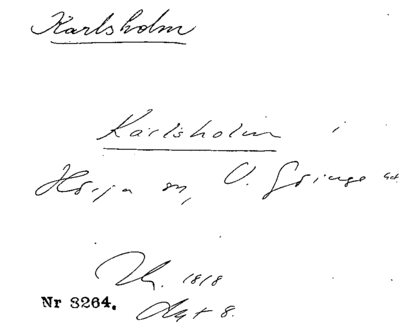 Karlsholm
Karlsholm i
Hörja sn, V. Göinge hd
1818
Nr 3264.
Akt 8.